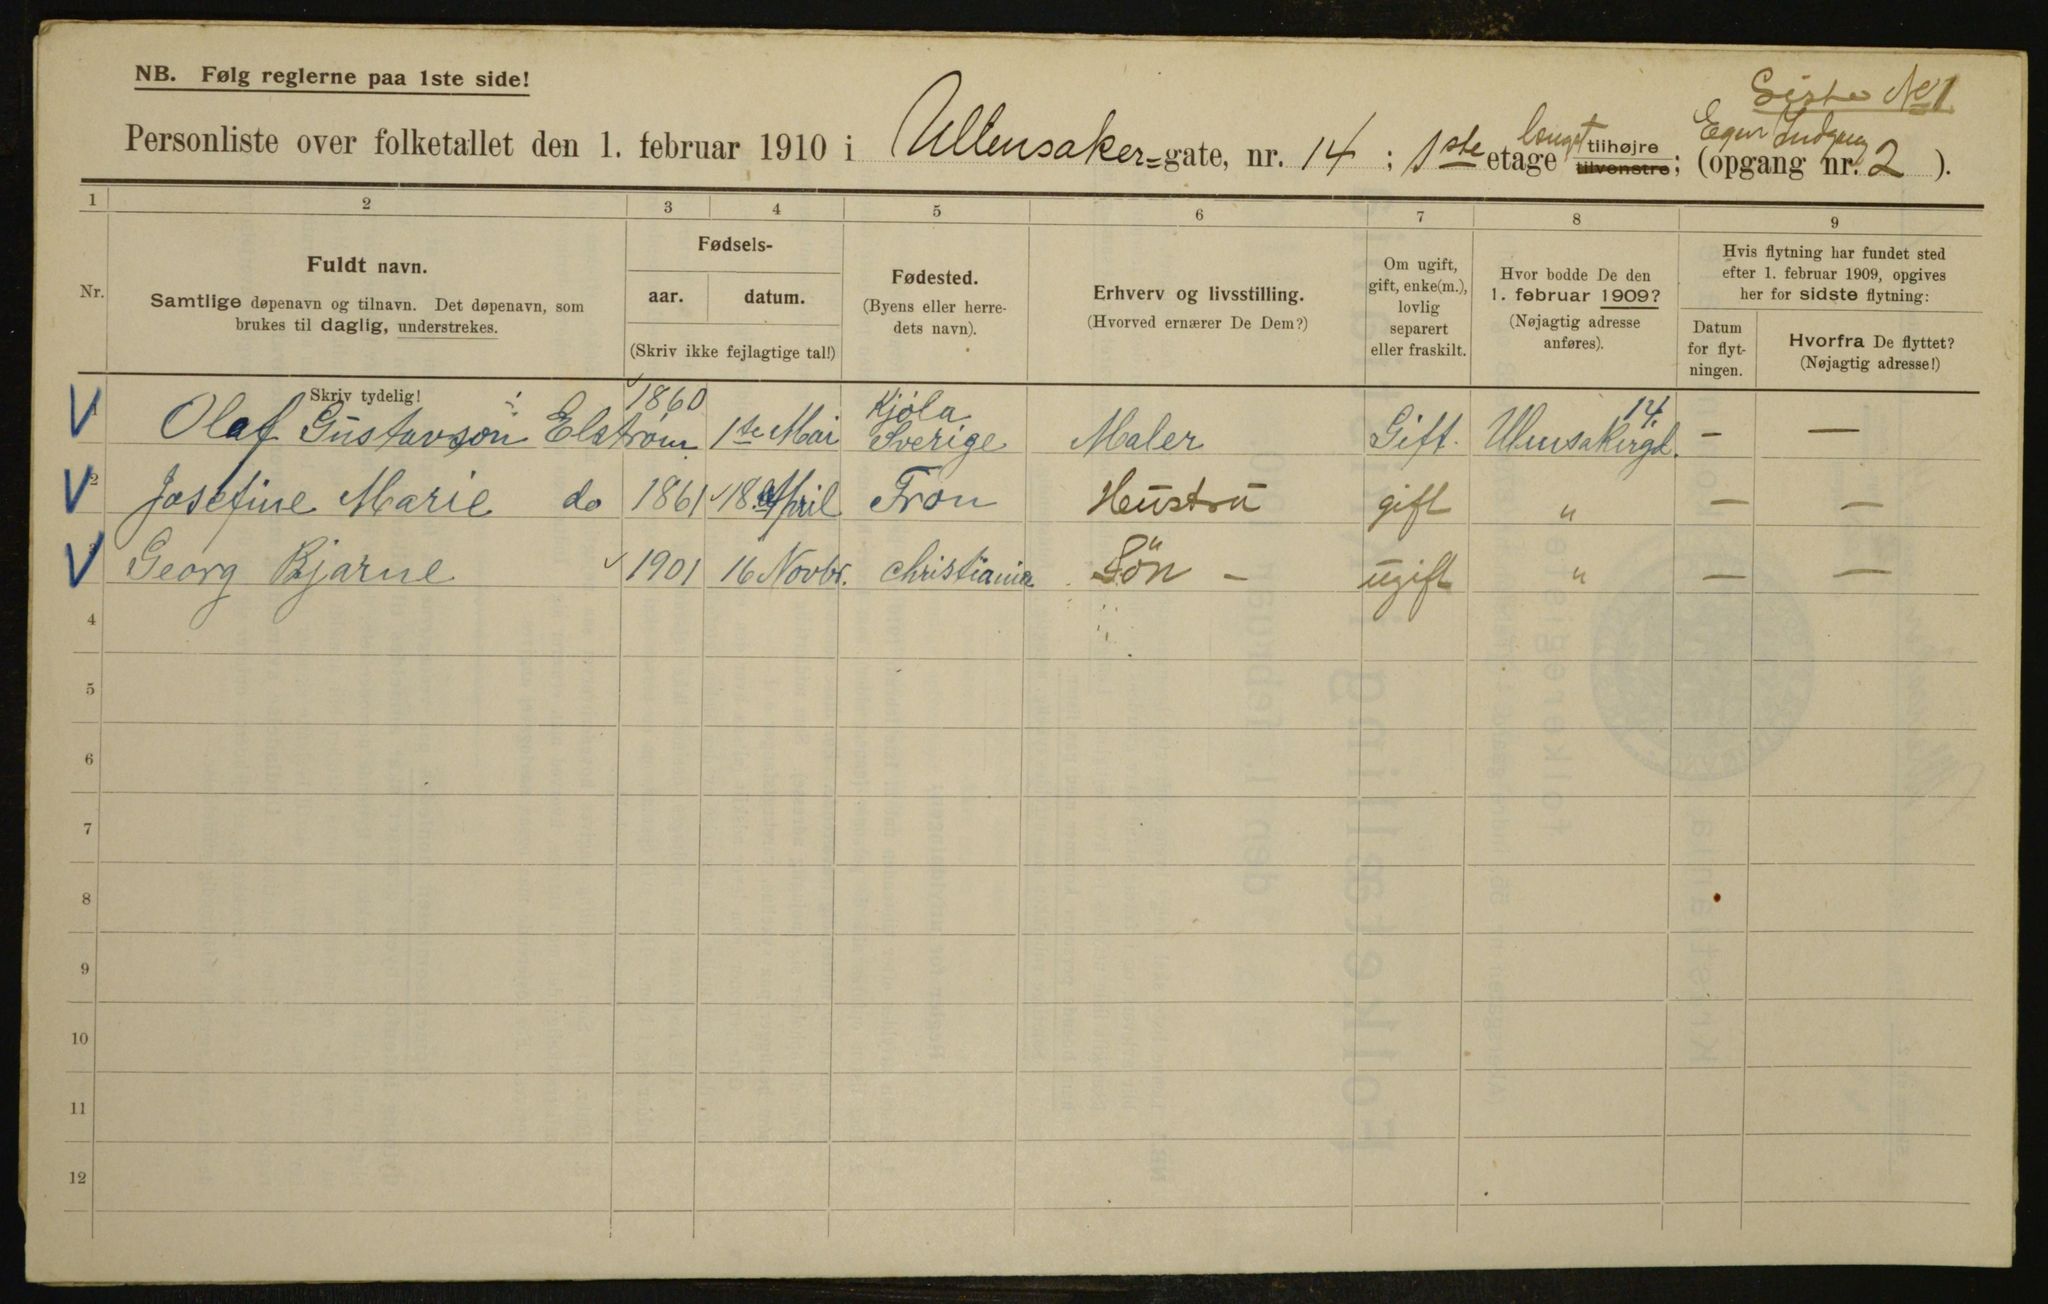 NB. Følg reglerne paa 1ste side!
Liste No 1
Personliste over folketallet den 1. februar 1910 i Ullensaker=gate, nr. 14; 1ste etage længst tilhøjre tilvenstre; Egen Indgang (opgang nr. 2).
1 2 3 4 5 6 7 8 9
Nr.
Fuldt navn.
Samtlige døpenavn og tilnavn. Det døpenavn, som
brukes til daglig, understrekes.
Skriv tydelig!
Fødsels-
aar. datum.
(Skriv ikke fejlagtige tal!)
Fødested.
(Byens eller herre-
dets navn).
Erhverv og livsstilling.
(Hvorved ernærer De Dem?)
Om ugift,
gift, enke(m.),
lovlig
separert
eller fraskilt.
Hvor bodde De den
1. februar 1909?
(Nøjagtig adresse
anføres).
Hvis flytning har fundet sted
efter 1. februar 1909, opgives
her for sidste flytning:
Datum
for flyt-
ningen.
Hvorfra De flyttet?
(Nøjagtig adresse!)
V 1 Olaf Gustavson Elstrøm 1860 1ste Mai Kjøla Sverige Maler Gift. Ulensakergd. 14. — —
V 2 Josefine Marie do 1861 18 April Fron Hustru gift " — —
V 3 Georg Bjarne 1901 16 Novbr. Christiania Søn " — ugift " — —
4
5
6
7
8
9
10
11
12